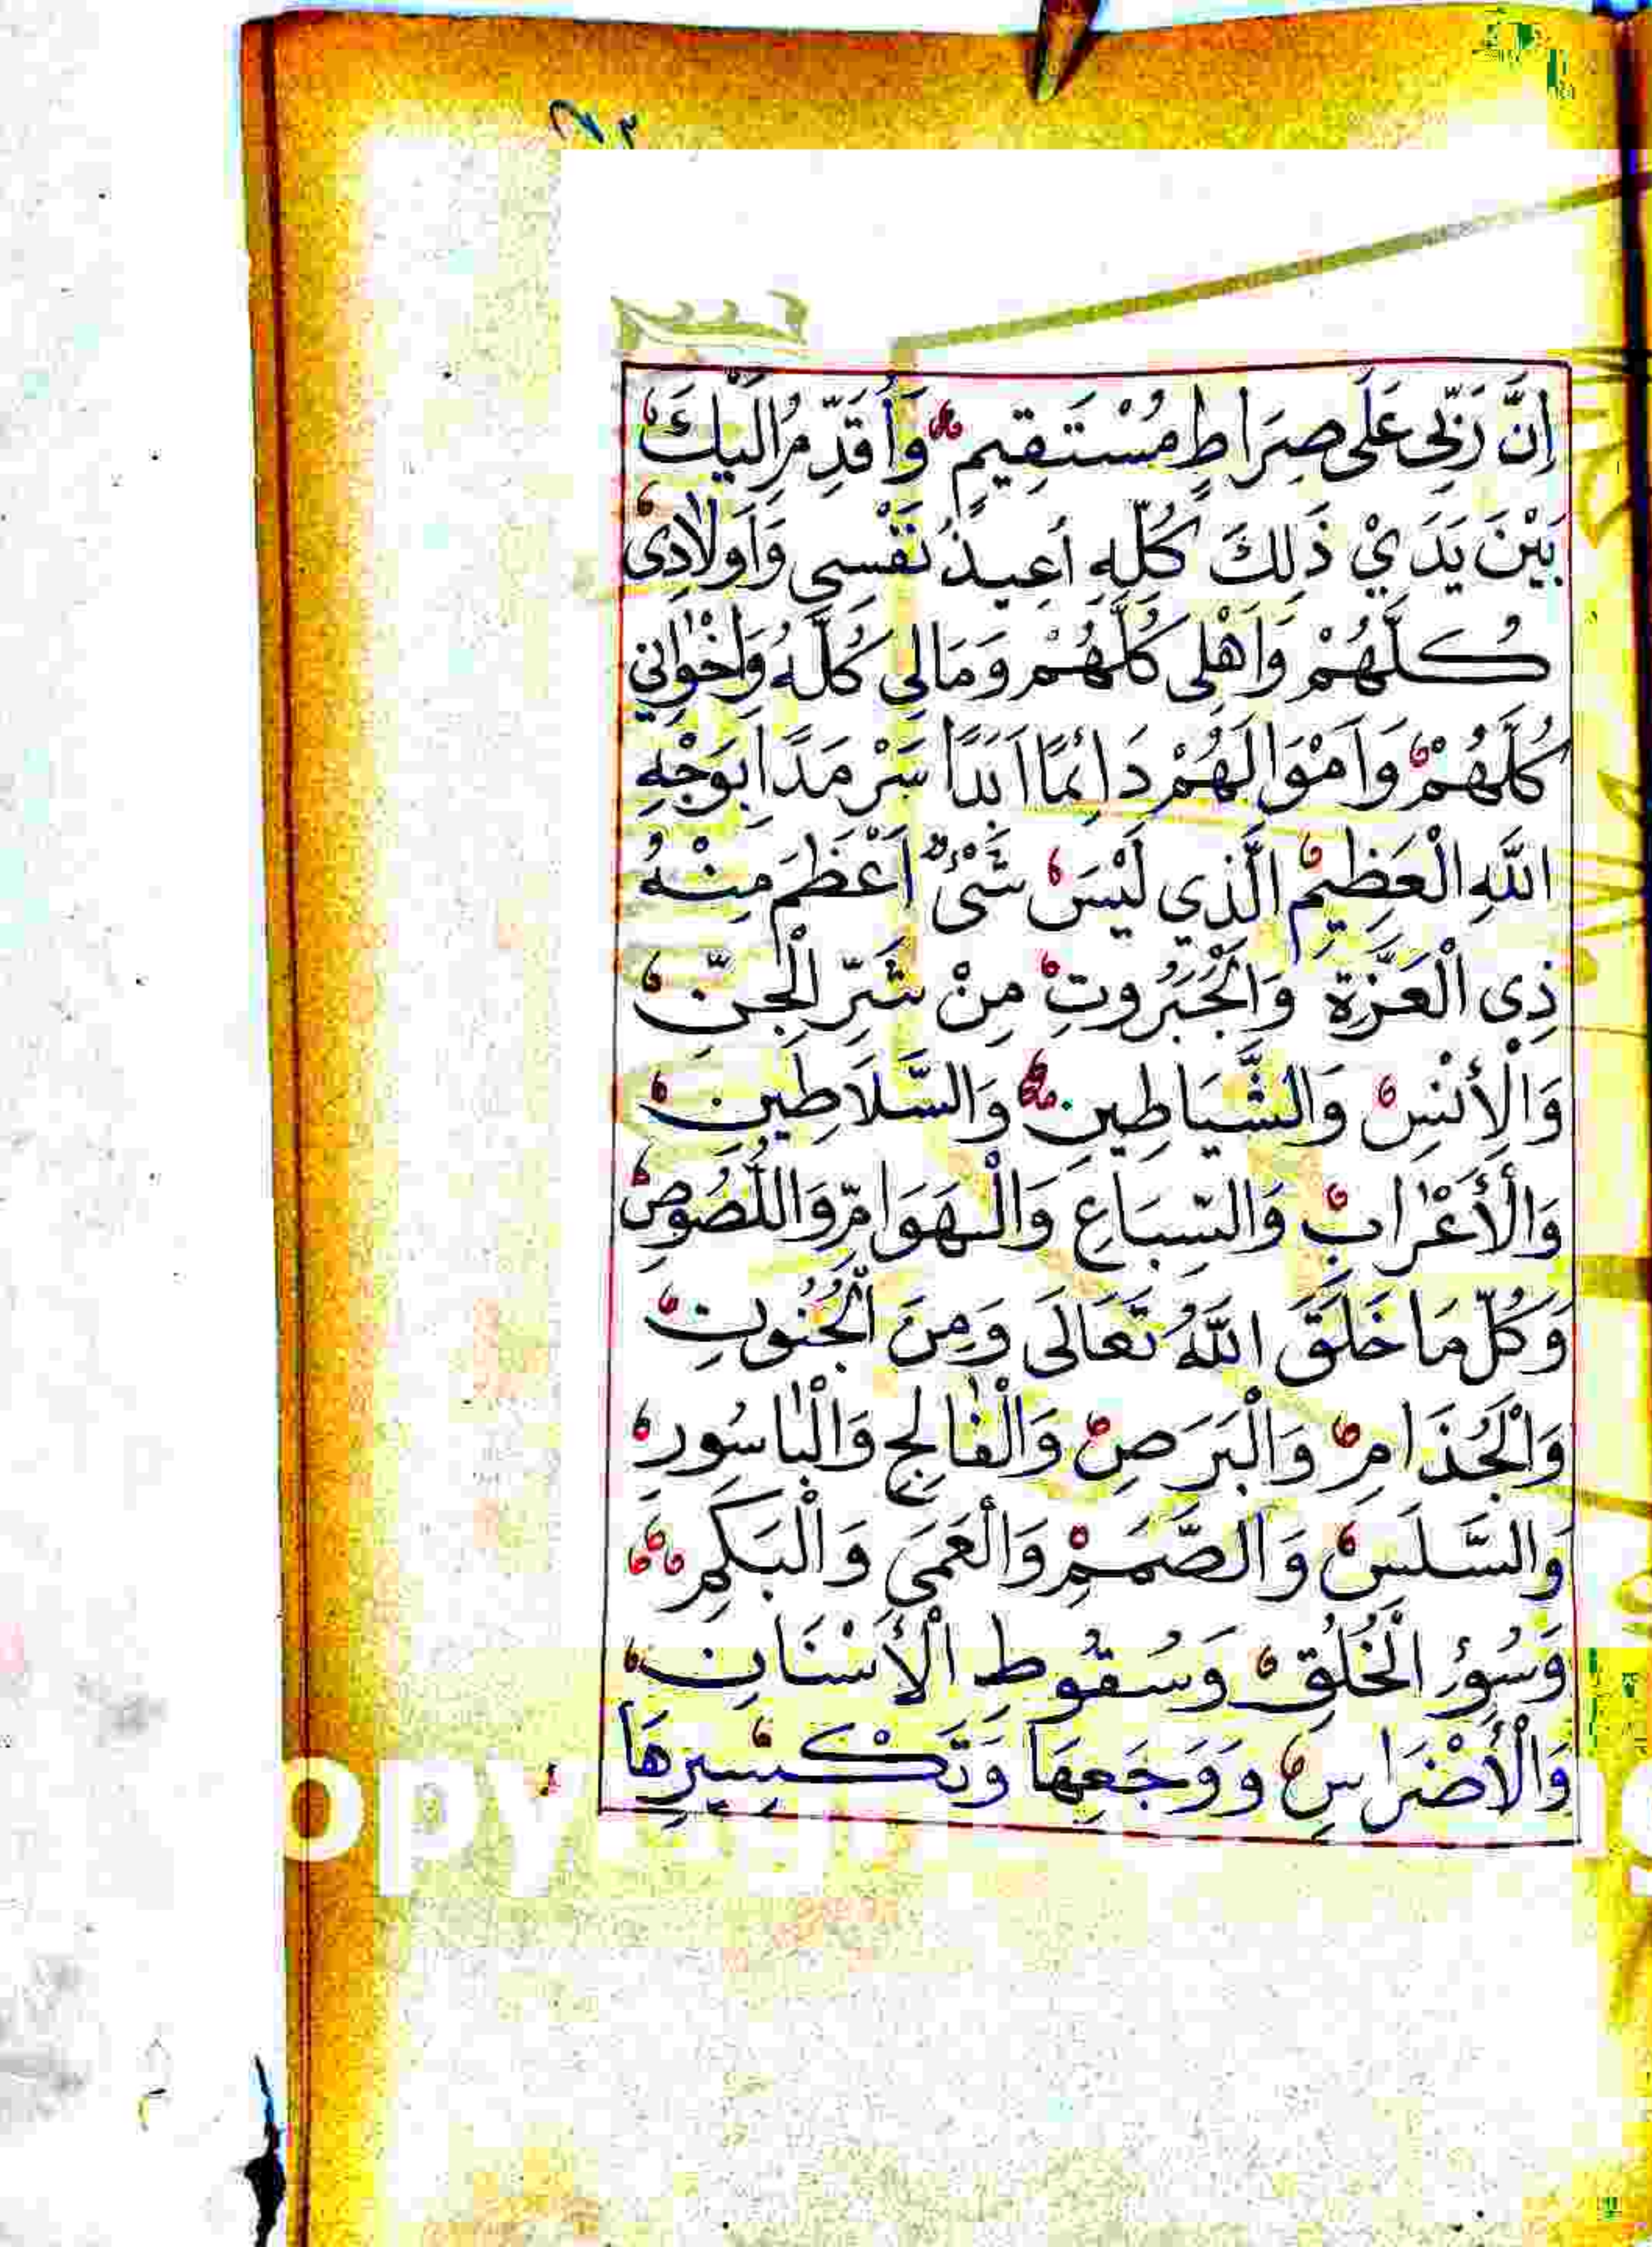 إِنَّ رَبِّي عَلَى صِرَاطٍ مُسْتَقِيمٍ وَأُقَدِّمُ إِلَيْكَ
بَيْنَ يَدَيْ ذَلِكَ كُلِّهِ أُعِيذُ نَفْسِي وَأَوْلَادِي
كُلَّهُمْ وَأَهْلِي كُلَّهُمْ وَمَالِي كُلَّهُ وَإِخْوَانِي
كُلَّهُمْ وَأَمْوَالَهُمْ دَائِمًا أَبَدًا سَرْمَدًا بِوَجْهِ
اللَّهِ الْعَظِيمِ الَّذِي لَيْسَ شَيْءٌ أَعْظَمَ مِنْهُ
ذِي الْعَزَّةِ وَالْجَبَرُوتِ مِنْ شَرِّ الْجِنِّ
وَالْأِنْسِ وَالشَّيَاطِينِ وَالسَّلَاطِينِ
وَالْأَعْرَابِ وَالسِّبَاعِ وَالْهَوَامِّ وَاللُّصُوصِ
وَكُلِّ مَا خَلَقَ اللَّهُ تَعَالَى وَمِنَ الْجُنُونِ
وَالْجُذَامِ وَالْبَرَصِ وَالْفَالِجِ وَالْبَاسُورِ
وَالسَّلَسِ وَالصَّمَمِ وَالْعَمَى وَالْبَكَمِ
وَسُوءِ الْخُلُقِ وَسُقُوطِ الْأَسْنَانِ
وَالْأَضْرَاسِ وَوَجَعِهَا وَتَكْسِيرِهَا